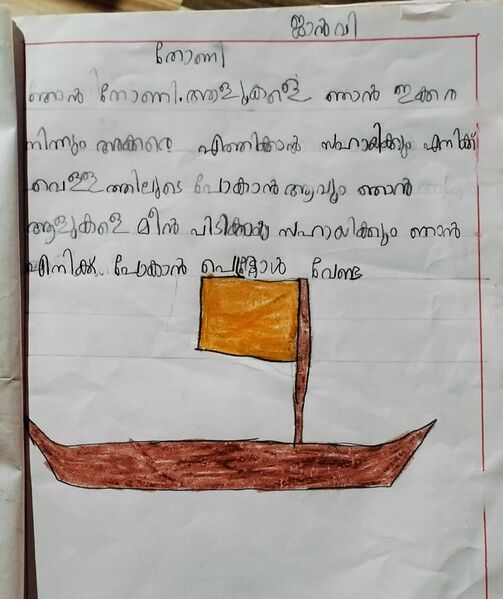 ജാൻവി
തോണി
ഞാൻ തോണി. ആളുകളെ ഞാൻ ഇക്കര
നിന്നും അക്കരെ എത്തിക്കാൻ സഹായിക്കും എനിക്ക്
വെള്ളത്തിലൂടെ പോകാൻ ആവും ഞാൻ
ആളുകളെ മീൻ പിടിക്കാൻ സഹായിക്കും ഞാൻ
എനിക്ക് പോകാൻ പെട്രോൾ വേണ്ട